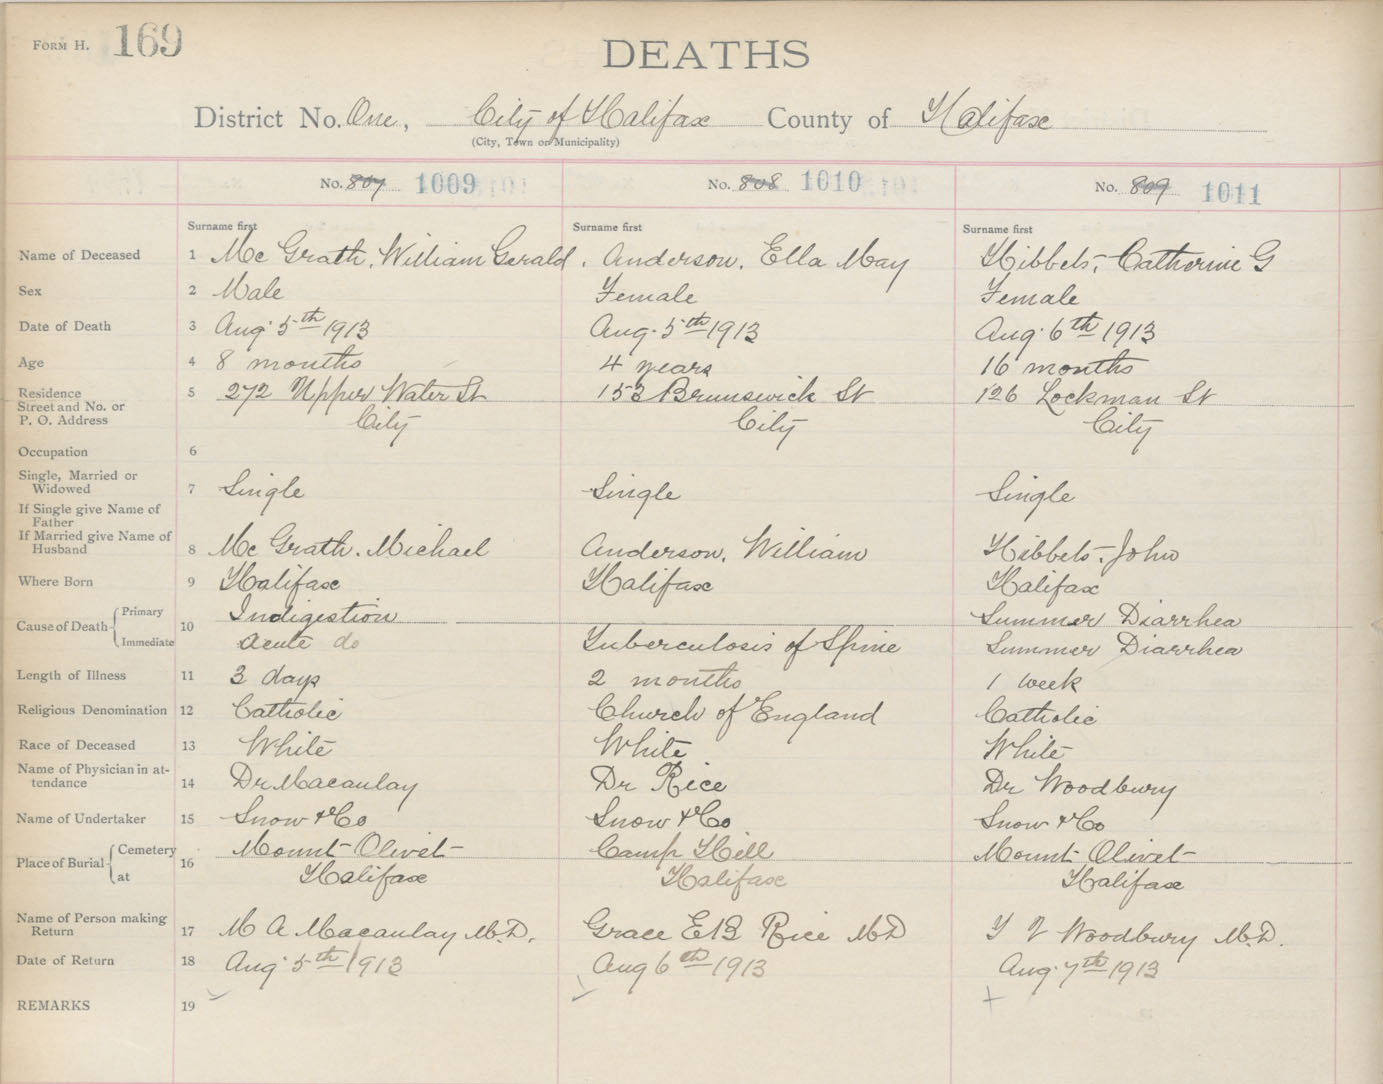 FORM H. 169
DEATHS
District No. One, City of Halifax County of Halifax
(City, Town or Municipality)
No. 807 1009 No. 808 1010 No. 809 1011
Surname first Surname first Surname first
Name of Deceased 1 Mc Grath, William Gerald. Anderson, Ella May Hibbets, Catherine G
Sex 2 Male Female Female
Date of Death 3 Aug. 5th 1913 Aug. 5th 1913 Aug. 6th 1913
Age 4 8 months 4 years 16 months
Residence 5 272 Upper Water St 153 Brunswick St 126 Lockman St
Street and No. or
P. O. Address City City City
Occupation 6
Single, Married or
Widowed 7 Single Single Single
If Single give Name of
Father
If Married give Name of
Husband 8 Mc Grath. Michael Anderson, William Hibbets, John
Where Born 9 Halifax Halifax Halifax
Cause of Death 10 Primary Indigestion Summer Diarrhea
Immediate acute do Tuberculosis of Spine Summer Diarrhea
Length of Illness 11 3 days 2 months 1 week
Religious Denomination 12 Catholic Church of England Catholic
Race of Deceased 13 White White White
Name of Physician in at-
tendance 14 Dr Macaulay Dr Rice Dr Woodbury
Name of Undertaker 15 Snow & Co Snow & Co Snow & Co
Place of Burial 16 Cemetery Mount Olivet Camp Hill Mount Olivet
at Halifax Halifax Halifax
Name of Person making
Return 17 M A Macaulay M.D. Grace E B Rice M D Woodbury M.D.
Date of Return 18 Aug. 5th 1913 Aug 6th 1913 Aug. 7th 1913
REMARKS 19